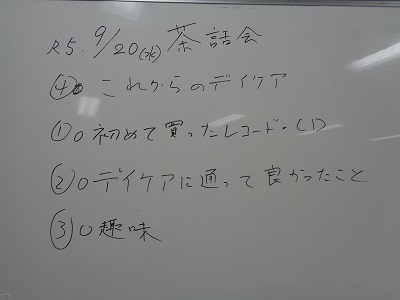 R5.9/20(水)茶話会
④○これからのデイケア
①○初めて買ったレコード・(1)
②○デイケアに通って良かったこと
③○趣味